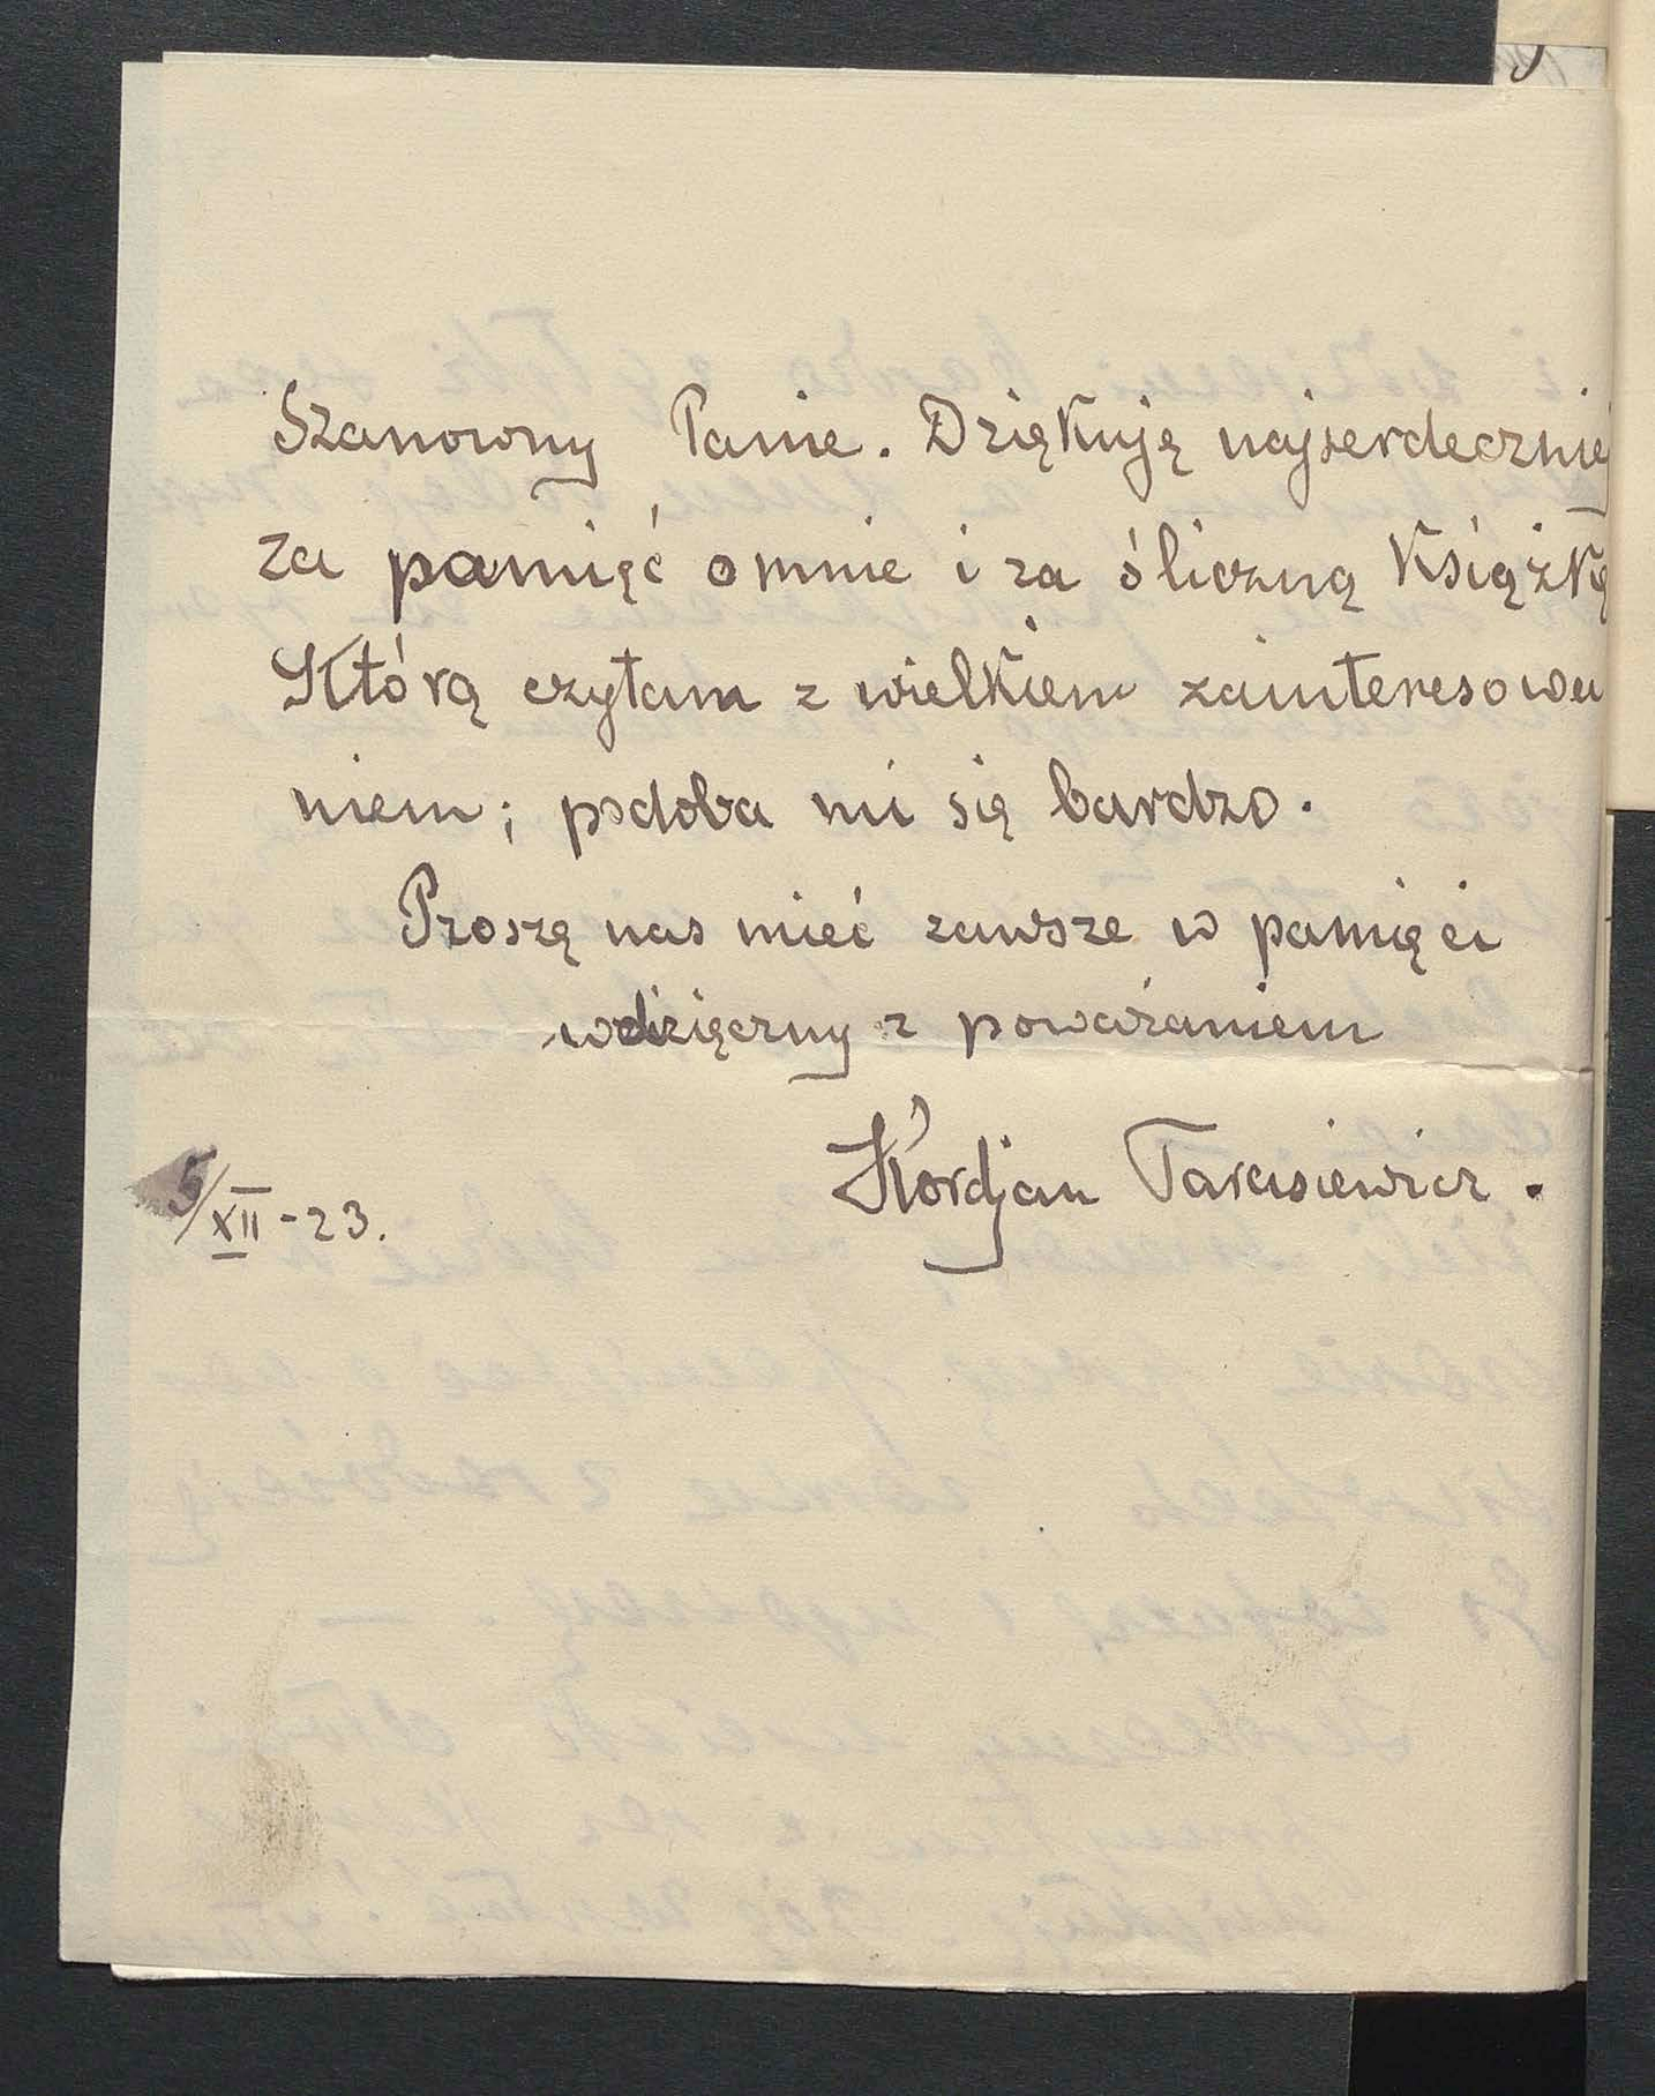 Szanowny Panie. Dziękuję najserdeczniej
za pamięć o mnie i za śliczną książkę
Którą czytam z wielkiem zainteresowa
niem; podoba mi się bardzo.
Proszę nas mieć zawsze w pamięci
wdzięczny z poważaniem
Kordjan Tarasiewicz.
5/XII-23.